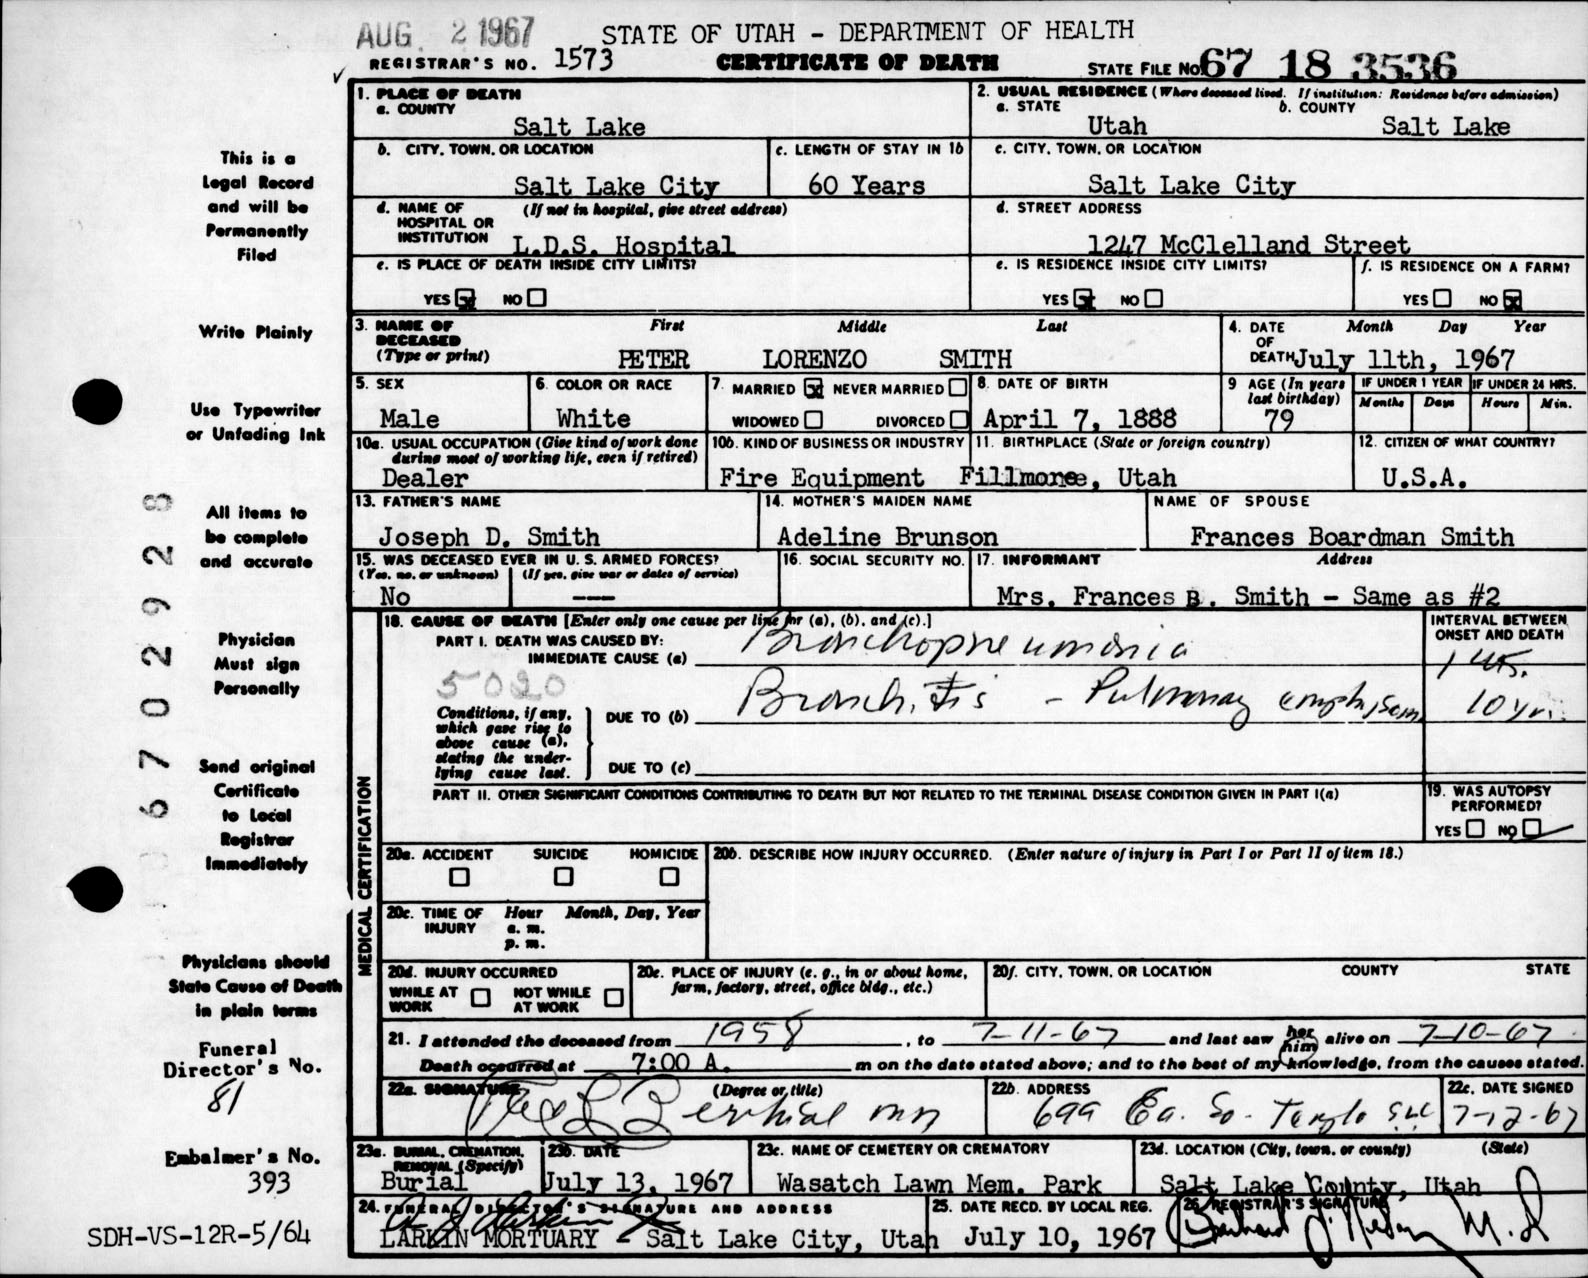 AUG 2 1967
STATE OF UTAH - DEPARTMENT OF HEALTH
REGISTRAR'S NO. 1573
CERTIFICATE OF DEATH
STATE FILE NO. 67 18 3536
This is a
Legal Record
and will be
Permanently
Filed
Write Plainly
Use Typewriter
or Unfading Ink
All items to
be complete
and accurate
Physician
Must sign
Personally
Send original
Certificate
to Local
Registrar
Immediately
Physicians should
State Cause of Death
in plain terms
Funeral
Director's No.
81
Embalmer's No.
393
SDH-VS-12R-5/64
6702928
1. PLACE OF DEATH
a. COUNTY
Salt Lake
2. USUAL RESIDENCE (Where deceased lived. If institution: Residence before admission)
a. STATE b. COUNTY
Utah Salt Lake
b. CITY, TOWN, OR LOCATION
Salt Lake City
c. LENGTH OF STAY IN 1b
60 Years
c. CITY, TOWN, OR LOCATION
Salt Lake City
d. NAME OF HOSPITAL OR INSTITUTION (If not in hospital, give street address)
L.D.S. Hospital
d. STREET ADDRESS
1247 McClelland Street
e. IS PLACE OF DEATH INSIDE CITY LIMITS?
YES x NO
e. IS RESIDENCE INSIDE CITY LIMITS?
YES x NO
f. IS RESIDENCE ON A FARM?
YES NO x
3. NAME OF DECEASED (Type or print) First Middle Last
PETER LORENZO SMITH
4. DATE OF DEATH Month Day Year
July 11th, 1967
5. SEX
Male
6. COLOR OR RACE
White
7. MARRIED x NEVER MARRIED
WIDOWED DIVORCED
8. DATE OF BIRTH
April 7, 1888
9 AGE (In years last birthday)
79
IF UNDER 1 YEAR IF UNDER 24 HRS.
Months Days Hours Min.
10a. USUAL OCCUPATION (Give kind of work done during most of working life, even if retired)
Dealer
10b. KIND OF BUSINESS OR INDUSTRY
Fire Equipment
11. BIRTHPLACE (State or foreign country)
Fillmore, Utah
12. CITIZEN OF WHAT COUNTRY?
U.S.A.
13. FATHER'S NAME
Joseph D. Smith
14. MOTHER'S MAIDEN NAME
Adeline Brunson
NAME OF SPOUSE
Frances Boardman Smith
15. WAS DECEASED EVER IN U.S. ARMED FORCES?
(Yes, no, or unknown) (If yes, give war or dates of service)
No ---
16. SOCIAL SECURITY NO.
17. INFORMANT Address
Mrs. Frances B. Smith - Same as #2
MEDICAL CERTIFICATION
18. CAUSE OF DEATH [Enter only one cause per line for (a), (b), and (c).]
PART I. DEATH WAS CAUSED BY:
IMMEDIATE CAUSE (a) Bronchopneumonia
INTERVAL BETWEEN ONSET AND DEATH
5020
Conditions, if any, which gave rise to above cause (a), stating the underlying cause last.
DUE TO (b) Bronchitis - Pulmonary emphysem
10 yr.
DUE TO (c)
PART II. OTHER SIGNIFICANT CONDITIONS CONTRIBUTING TO DEATH BUT NOT RELATED TO THE TERMINAL DISEASE CONDITION GIVEN IN PART I(a)
19. WAS AUTOPSY PERFORMED?
YES NO
20a. ACCIDENT SUICIDE HOMICIDE
20b. DESCRIBE HOW INJURY OCCURRED. (Enter nature of injury in Part I or Part II of item 18.)
20c. TIME OF INJURY Hour Month, Day, Year
a. m.
p. m.
20d. INJURY OCCURRED
WHILE AT WORK NOT WHILE AT WORK
20e. PLACE OF INJURY (e. g., in or about home, farm, factory, street, office bldg., etc.)
20f. CITY, TOWN, OR LOCATION COUNTY STATE
21. I attended the deceased from 1958, to 7-11-67 and last saw her him alive on 7-10-67
Death occurred at 7:00 A. m on the date stated above; and to the best of my knowledge, from the causes stated.
22a. SIGNATURE (Degree or title)
22b. ADDRESS
699 Ea. So. Temple SLC
22c. DATE SIGNED
7-12-67
23a. BURIAL, CREMATION, REMOVAL (Specify)
Burial
23b. DATE
July 13, 1967
23c. NAME OF CEMETERY OR CREMATORY
Wasatch Lawn Mem. Park
23d. LOCATION (City, town, or county) (State)
Salt Lake County, Utah
24. FUNERAL DIRECTOR'S SIGNATURE AND ADDRESS
LARKIN MORTUARY - Salt Lake City, Utah
25. DATE RECD. BY LOCAL REG.
July 10, 1967
26. REGISTRAR'S SIGNATURE